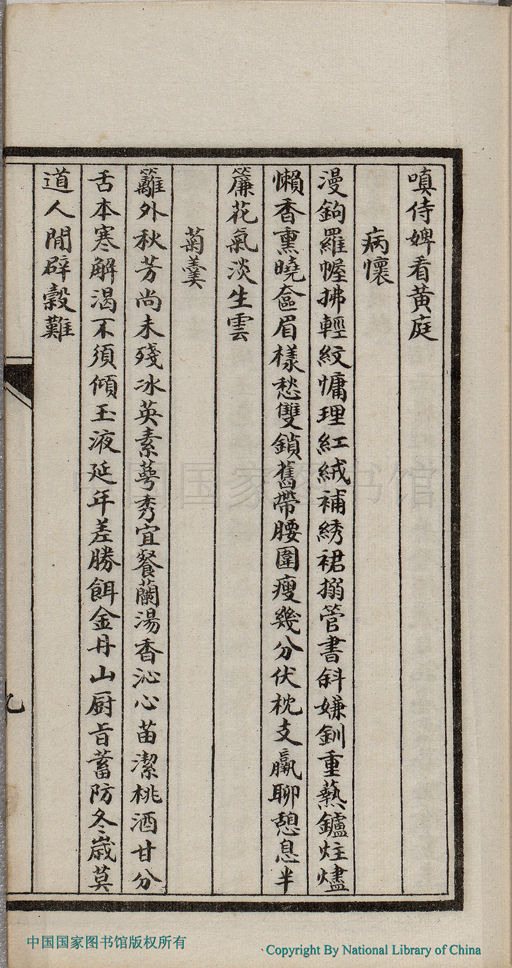 嗔侍婢看黃庭
病懷
漫鉤羅幄拂輕紋慵理紅絨補綉裙搦管書斜嫌釧重爇鑪炷燼
懶香熏曉奩眉樣愁雙鎖舊帶腰圍瘦幾分伏枕支羸聊憩息半
簾花氣淡生雲
菊羹
籬外秋芳尚未殘冰英素萼秀宜餐蘭湯香沁心苗潔桃酒甘分
舌本寒解渴不須傾玉液延年差勝餌金丹山厨旨蓄防冬歲莫
道人閒辟穀難
九
中国国家图书馆版权所有
Copyright By National Library of China